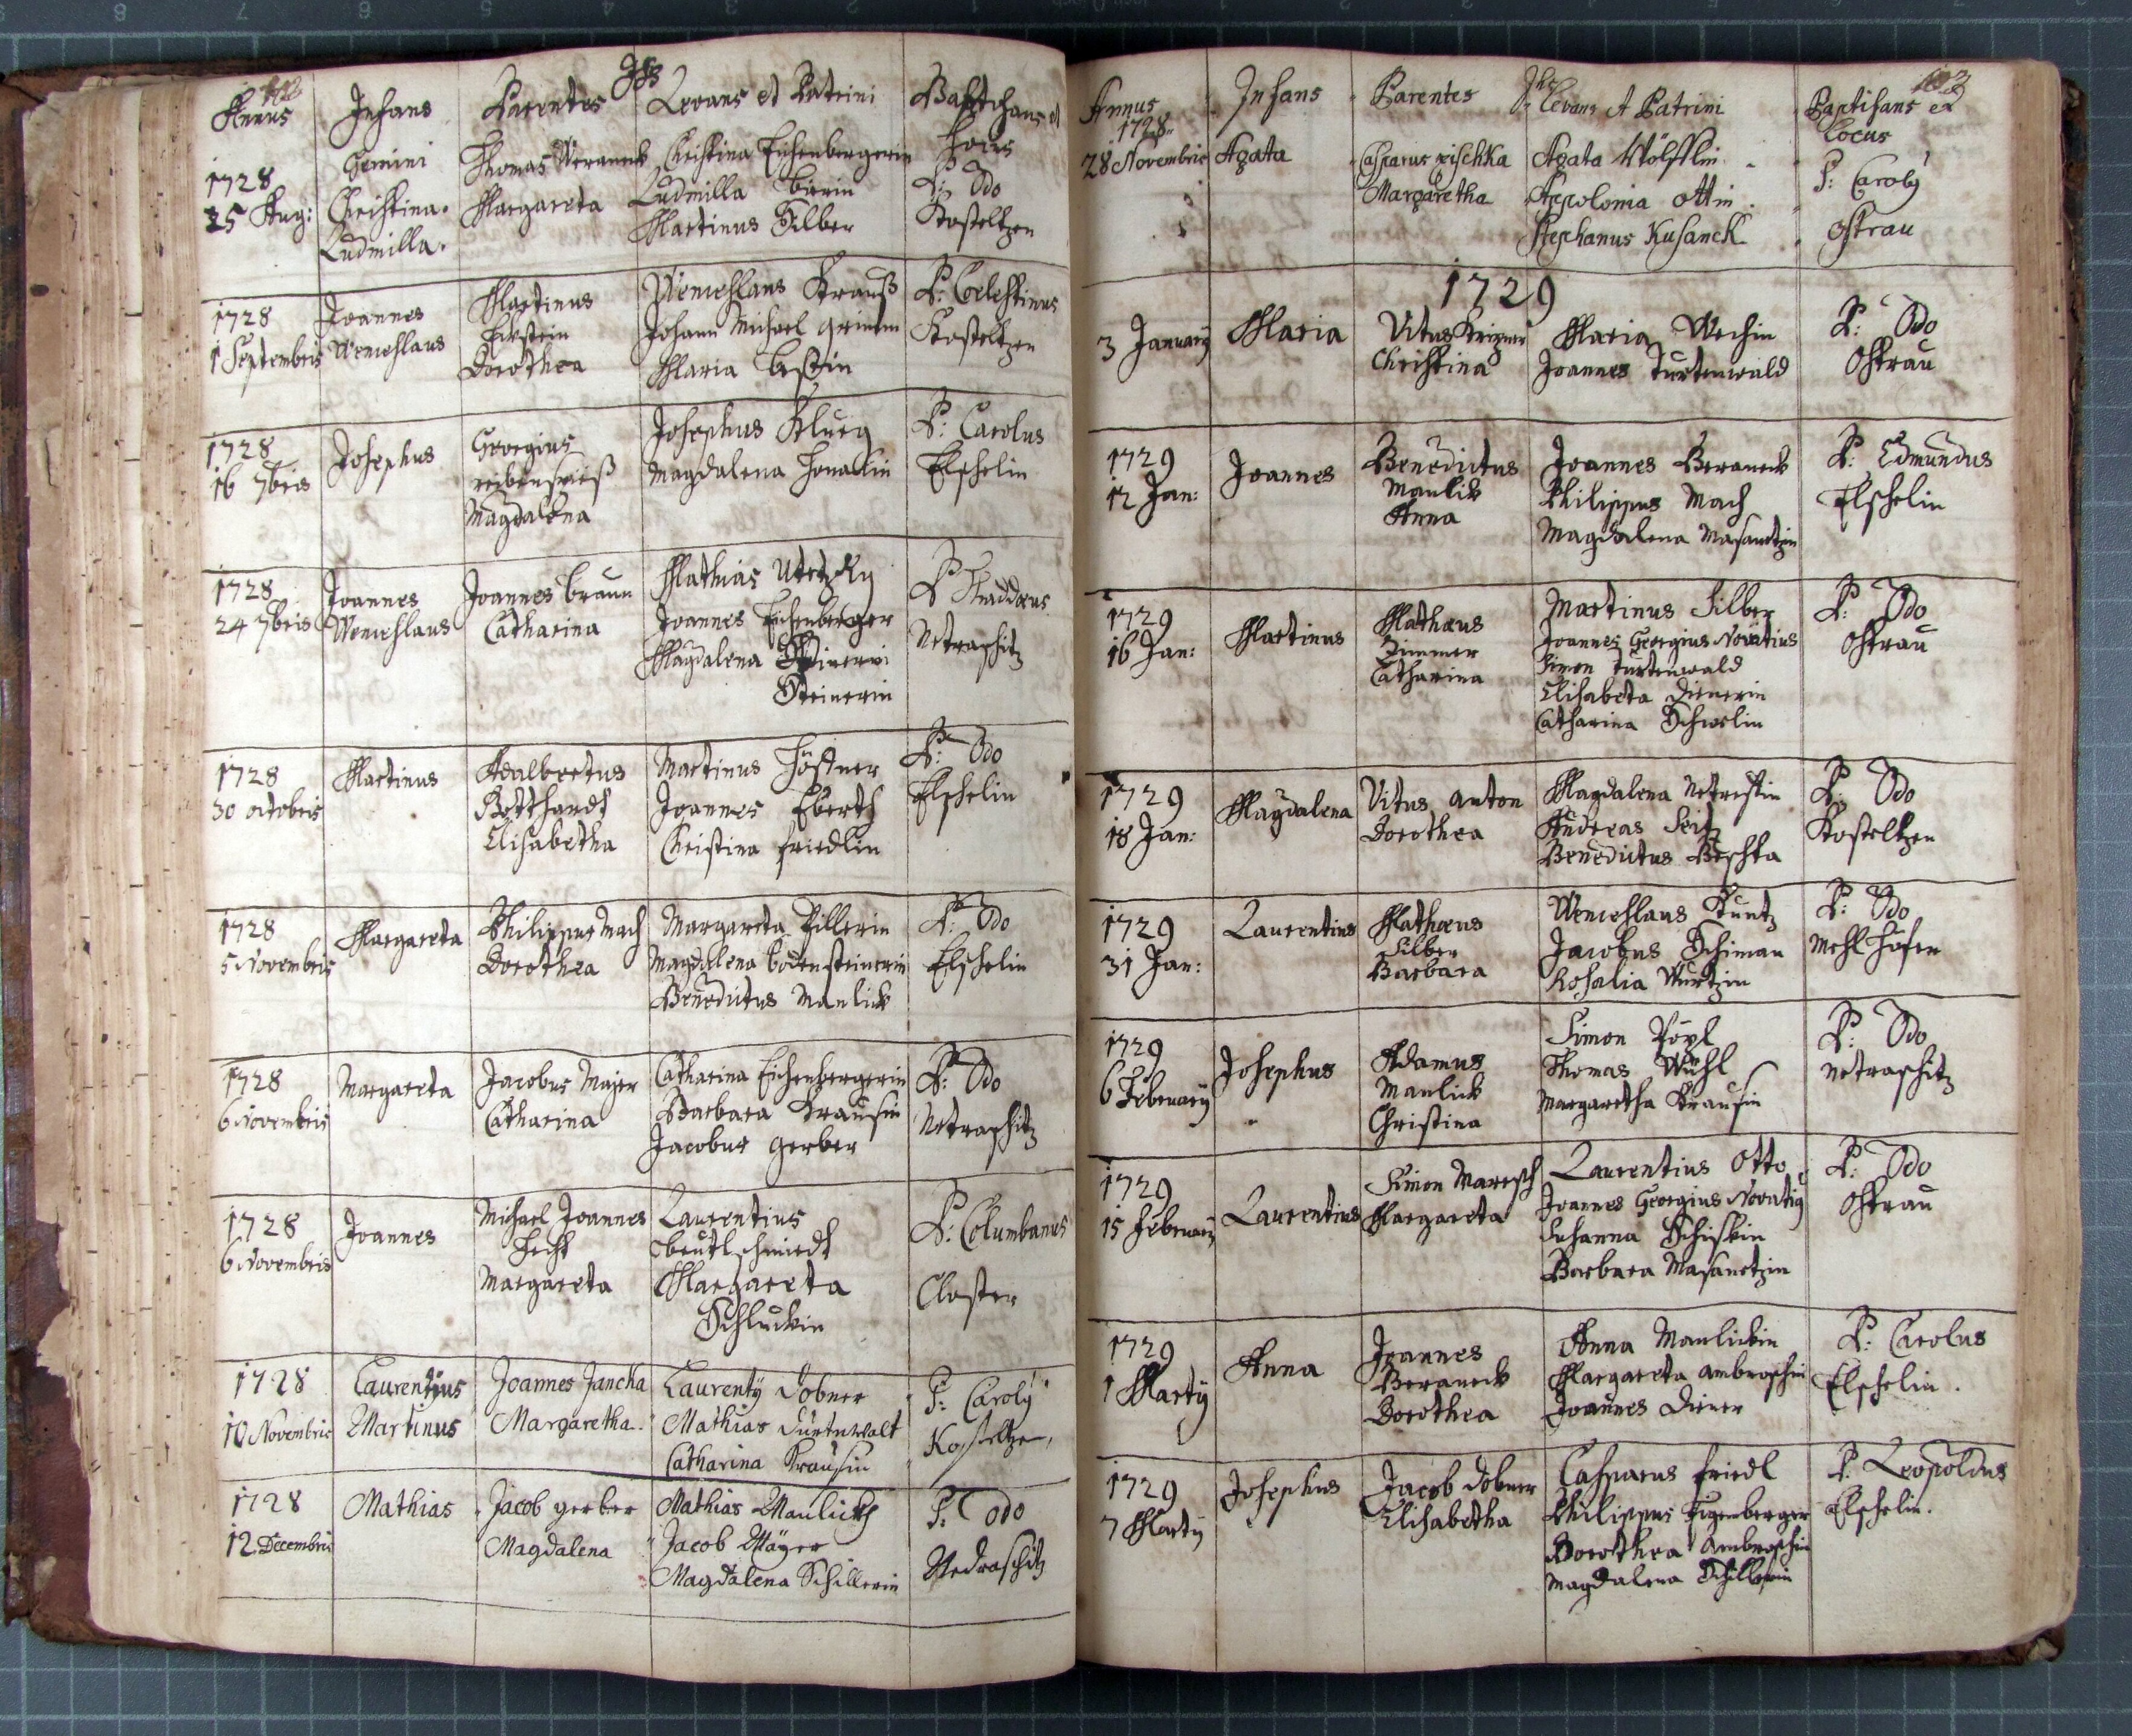 Annus
Infans
Parentes
Levans et Patrini
Baptizans et
Locus
1728
25 Aug:
Gemini
Christina.
Ludmilla.
Thomas Weraneck
Margareta
Christina Eichenbergerin
Ludmilla
Martinus Silber
P: Odo
Kosteltzen
1728
1 Septembris
Joannes
Wenceslaus
Martinus
Dorothea
Wenceslaus Krauß
Johann Michael Grimm
Maria
P: Coelestinus
Kosteltzen
1728
16 7bris
Josephus
Georgius
Magdalena
Josephus Klueg
Magdalena
P: Carolus
Elschelin
1728
24 7bris
Joannes
Wenceslaus
Joannes Braun
Catharina
Mathias Utetzky
Joannes Eichenberger
Magdalena
Steinerin
P Thaddæus
Netraschitz
1728
30 octobris
Martinus
Adalbertus
Gotthardt
Elisabetha
Martinus
Joannes Eberth
Christina Friedlin
P: Odo
Elschelin
1728
5 Novembris
Margareta
Philippus Mach
Dorothea
Margareta Pillerin
Magdalena Bodensteinerin
Benedictus Manlick
P: Odo
Elschelin
1728
6 Novembris
Margareta
Jacobus Majer
Catharina
Catharina Eichenbergerin
Barbara Krausin
Jacobus Gerber
P: Odo
Netraschitz
1728
6 Novembris
Joannes
Michael Joannes
Hecht
Margareta
Laurentius
Beutlschmiedt
Margareta
Schluckin
P: Columbanus
Closter
1728
10 Novembris
Laurentius
Martinus
Joannes Jancka
Margaretha.
Laurentÿ Dobner
Mathias Durtnwalt
Catharina Krausin
P: Carolÿ
Kosteltzen,
1728
12 Decembris
Mathias
Jacob gerber
Magdalena
Mathias Maulickh
Jacob Mäyer
Magdalena Schillerin
P: Odo
Nedraschitz
Annus
1728
Infans
Parentes
Levans et Patrini
Baptisans et
Locus
28 Novembris
Agata
Casparus pischka
Margaretha
Agata Wölfflin
Appolonia Ottin
Stephanus Kusanck
P: Carolÿ
Ostrau
1729
3 Januarÿ
Maria
Vitus
Christina
Maria Wechin
Joannes Turtenwald
P: Odo
Ostrau
1729
12 Jan:
Joannes
Benedictus
Manlick
Anna
Joannes Beraneck
Philippus Mach
Magdalena Masanetzin
P: Edmundus
Elschelin
1729
16 Jan:
Martinus
Mathæus
Zimmer
Catharina
Martinus Silber
Joannes Georgius Novatius
Simon Turtenwald
Elisabeta Dienerin
Catharina
P: Odo
Ostrau
1729
18 Jan:
Magdalena
Vitus Anton
Dorothea
Magdalena
Andreas Seitz
Benedictus Peschka
P: Odo
Kosteltzen
1729
31 Jan:
Laurentius
Mathæus
Silber
Barbara
Wenceslaus Kuntz
Jacobus Schiman
Rosalia Wurtzin
P: Odo
Mehl Höfen
1729
6 Februarÿ
Josephus
Adamus
Manlick
Christina
Simon Pöpl
Thomas Wühl
Margaretha Krausin
P: Odo
Netraschitz
1729
15 Februarÿ
Laurentius
Simon Maresch
Margareta
Laurentius Otto
Joannes Georgius Novatius
Susanna
Barbara Masanetzin
P: Odo
Ostrau
1729
1 Martÿ
Anna
Joannes
Beraneck
Dorothea
Anna Manlickin
Margareta Ambroschin
Joannes Diener
P: Carolus
Elschelin.
1729
7 Martÿ
Josephus
Jacob Dobner
Elisabetha
Casparus Friedl
Philippus Eigenberger
Dorothea Ambroschin
Magdalena Schillerin
P: Leopoldus
Elschelin.